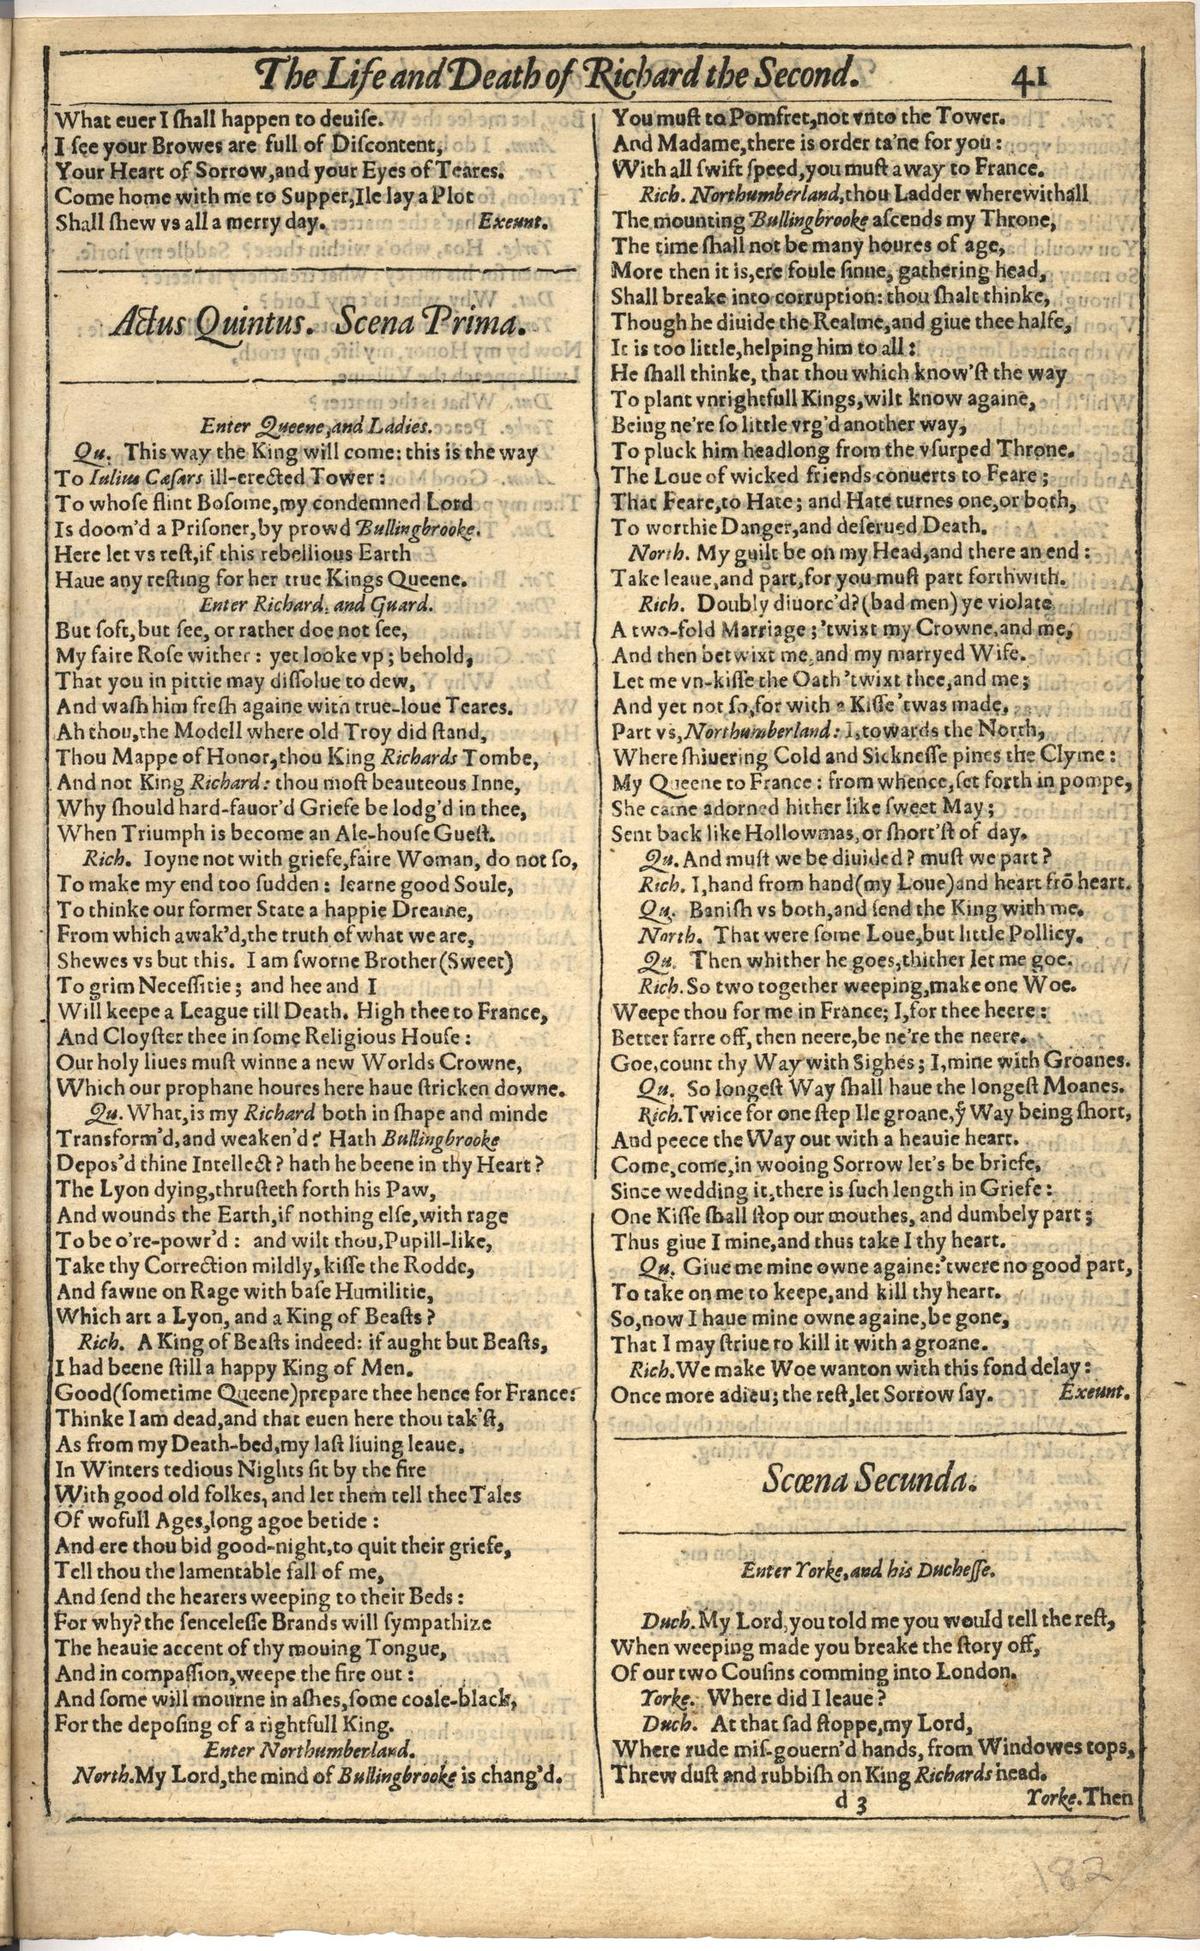 The Life and Death of Richard the Second. 41
What euer I shall happen to deuise.
I see your Browes are full of Discontent,
Your Heart of Sorrow,and your Eyes of Teares.
Come home with me to Supper,Ile lay a Plot
Shall shew vs all a merry day. Exeunt.
Actus Quintus. Scena Prima.
Enter Queene,and Ladies.
Qu. This way the King will come: this is the way
To Iulius Cæsars ill-erected Tower:
To whose flint Bosome,my condemned Lord
Is doom'd a Prisoner,by prowd Bullingbrooke.
Here let vs rest,if this rebellious Earth
Haue any resting for her true Kings Queene.
Enter Richard, and Guard.
But soft,but see, or rather doe not see,
My faire Rose wither: yet looke vp; behold,
That you in pittie may dissolue to dew,
And wash him fresh againe with true-loue Teares.
Ah thou,the Modell where old Troy did stand,
Thou Mappe of Honor,thou King Richards Tombe,
And not King Richard: thou most beauteous Inne,
Why should hard-fauor'd Griefe be lodg'd in thee,
When Triumph is become an Ale-house Guest.
Rich. Ioyne not with griefe,faire Woman, do not so,
To make my end too sudden: learne good Soule,
To thinke our former State a happie Dreame,
From which awak'd,the truth of what we are,
Shewes vs but this. I am sworne Brother(Sweet)
To grim Necessitie; and hee and I
Will keepe a League till Death. High thee to France,
And Cloyster thee in some Religious House:
Our holy liues must winne a new Worlds Crowne,
Which our prophane houres here haue stricken downe.
Qu. What,is my Richard both in shape and minde
Transform'd,and weaken'd? Hath Bullingbrooke
Depos'd thine Intellect? hath he beene in thy Heart?
The Lyon dying,thrusteth forth his Paw,
And wounds the Earth,if nothing else,with rage
To be o're-powr'd: and wilt thou,Pupill-like,
Take thy Correction mildly,kisse the Rodde,
And fawne on Rage with base Humilitie,
Which art a Lyon, and a King of Beasts?
Rich. A King of Beasts indeed: if aught but Beasts,
I had beene still a happy King of Men.
Good(sometime Queene)prepare thee hence for France:
Thinke I am dead,and that euen here thou tak'st,
As from my Death-bed,my last liuing leaue.
In Winters tedious Nights sit by the fire
With good old folkes, and let them tell thee Tales
Of wofull Ages,long agoe betide:
And ere thou bid good-night,to quit their griefe,
Tell thou the lamentable fall of me,
And send the hearers weeping to their Beds:
For why? the sencelesse Brands will sympathize
The heauie accent of thy mouing Tongue,
And in compassion,weepe the fire out:
And some will mourne in ashes,some coale-black,
For the deposing of a rightfull King.
Enter Northumberland.
North.My Lord,the mind of Bullingbrooke is chang'd.
You must to Pomfret,not vnto the Tower.
And Madame,there is order ta'ne for you:
With all swift speed,you must away to France.
Rich. Northumberland,thou Ladder wherewithall
The mounting Bullingbrooke ascends my Throne,
The time shall not be many houres of age,
More then it is,ere foule sinne, gathering head,
Shall breake into corruption: thou shalt thinke,
Though he diuide the Realme,and giue thee halfe,
It is too little,helping him to all:
He shall thinke, that thou which know'st the way
To plant vnrightfull Kings,wilt know againe,
Being ne're so little vrg'd another way,
To pluck him headlong from the vsurped Throne.
The Loue of wicked friends conuerts to Feare;
That Feare,to Hate; and Hate turnes one,or both,
To worthie Danger,and deserued Death.
North. My guilt be on my Head,and there an end:
Take leaue,and part,for you must part forthwith.
Rich. Doubly diuorc'd?(bad men) ye violate
A two-fold Marriage; 'twixt my Crowne,and me,
And then betwixt me,and my marryed Wife.
Let me vn-kisse the Oath 'twixt thee,and me;
And yet not so,for with a Kisse 'twas made.
Part vs,Northumberland: I,towards the North,
Where shiuering Cold and Sicknesse pines the Clyme:
My Queene to France: from whence,set forth in pompe,
She came adorned hither like sweet May;
Sent back like Hollowmas,or short'st of day.
Qu. And must we be diuided? must we part?
Rich. I,hand from hand(my Loue)and heart frō heart.
Qu. Banish vs both,and send the King with me.
North. That were some Loue,but little Pollicy.
Qu. Then whither he goes,thither let me goe.
Rich. So two together weeping,make one Woe.
Weepe thou for me in France; I,for thee heere:
Better farre off, then neere,be ne're the neere.
Goe,count thy Way with Sighes; I,mine with Groanes.
Qu. So longest Way shall haue the longest Moanes.
Rich.Twice for one step Ile groane,yͤ Way being short,
And peece the Way out with a heauie heart.
Come,come,in wooing Sorrow let's be briefe,
Since wedding it,there is such length in Griefe:
One Kisse shall stop our mouthes, and dumbely part;
Thus giue I mine,and thus take I thy heart.
Qu. Giue me mine owne againe: 'twere no good part,
To take on me to keepe,and kill thy heart.
So,now I haue mine owne againe,be gone,
That I may striue to kill it with a groane.
Rich.We make Woe wanton with this fond delay:
Once more adieu; the rest,let Sorrow say. Exeunt.
Scœna Secunda.
Enter Yorke,and his Duchesse.
Duch.My Lord,you told me you would tell the rest,
When weeping made you breake the story off,
Of our two Cousins comming into London.
Yorke. Where did I leaue?
Duch. At that sad stoppe,my Lord,
Where rude mis-gouern'd hands, from Windowes tops,
Threw dust and rubbish on King Richards head.
d 3 Yorke.Then
182